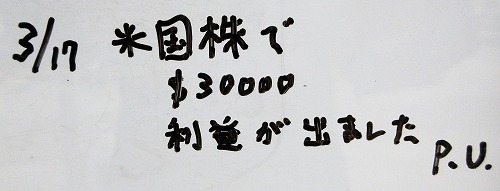 3/17 米国株で
$30000
利益が出ました
P.U.